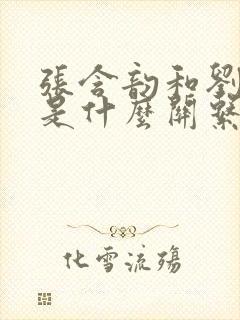 張含韵和劉
是什麼關繫
化雪流殤